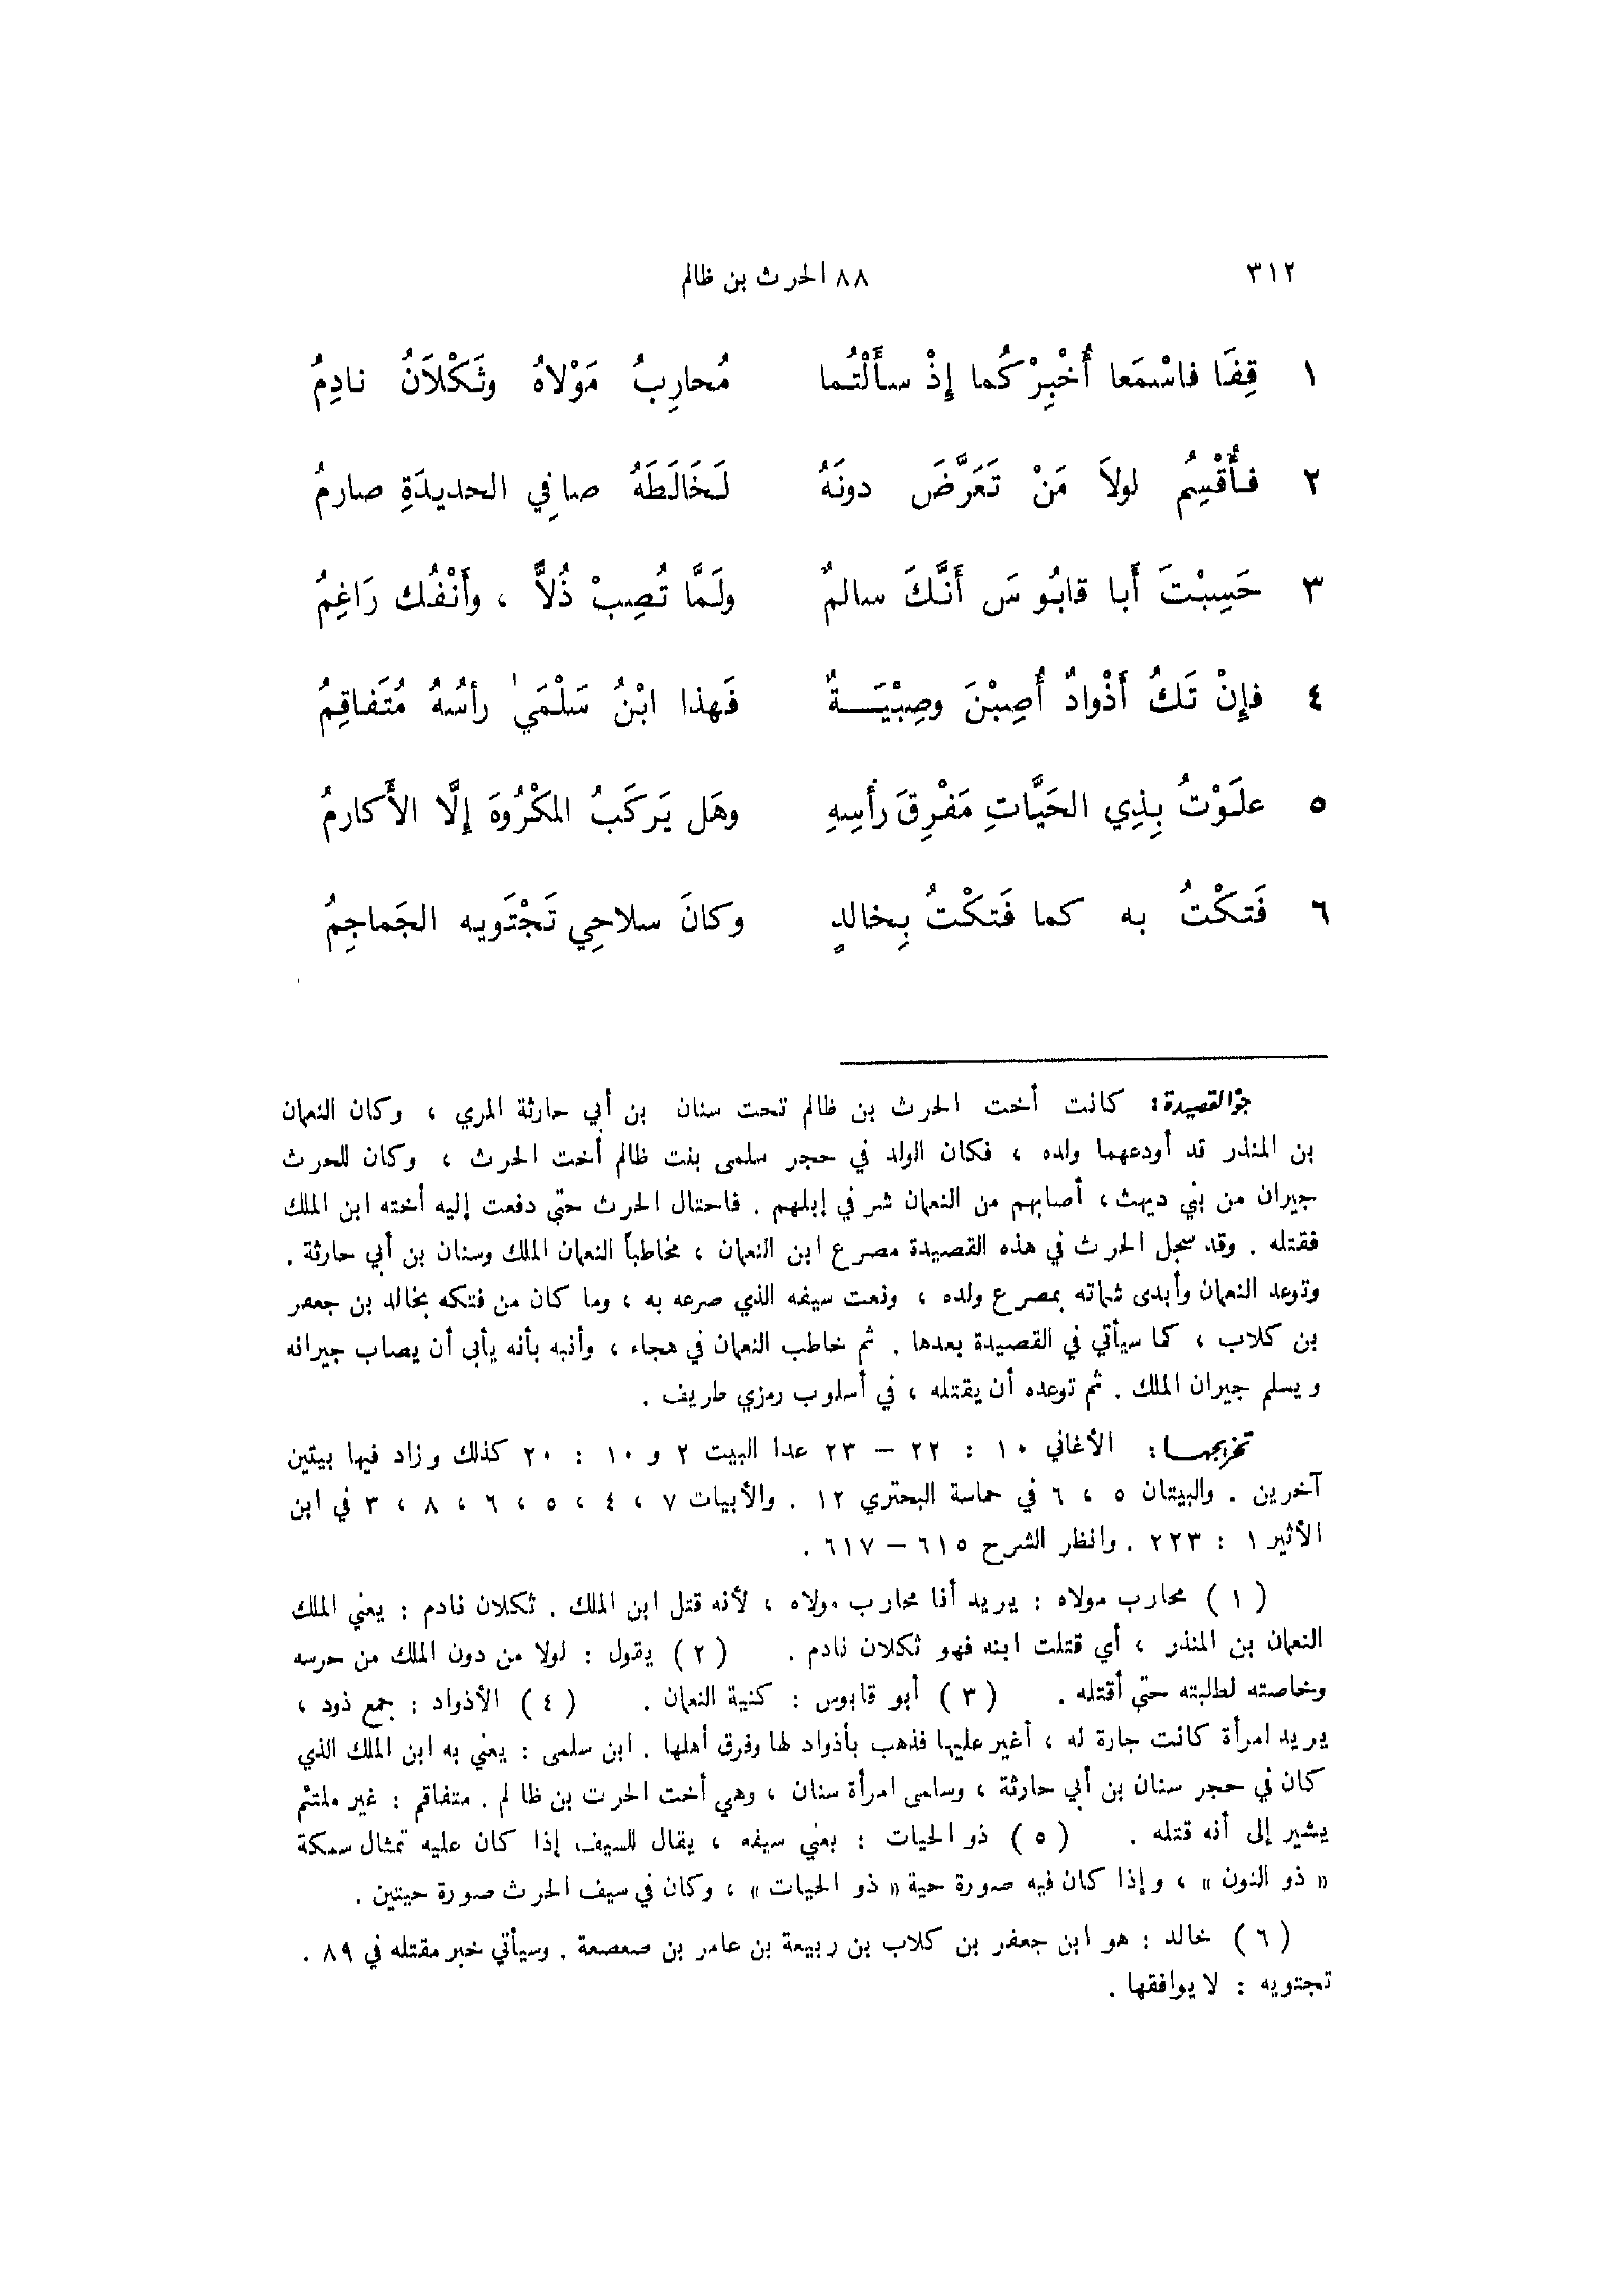 ٣١٢
٨٨ الحرث بن ظالم
١ قِفَا فاسْمَعا أُخْبِرْكُما إِذْ سأَلْتُما مُحارِبُ مَوْلاهُ وثَكْلاَنُ نادِمُ
٢ فأُقْسِمُ لولاَ مَنْ تَعَرَّضَ دونَهُ لَخَالَطَهُ صافِي الحديدَةِ صارمُ
٣ حَسِبْتَ أَبا قابُوسَ أَنَّكَ سالمٌ ولَمَّا تُصِبْ ذُلاًّ ، وأَنْفُك رَاغِمُ
٤ فإِنْ تَكُ أَذْوادٌ أُصِبْنَ وصِبْيَةٌ فَهذا ابْنُ سَلْمَىٰ رأسُهُ مُتَفاقِمُ
٥ علَوْتُ بِذِي الحَيَّاتِ مَفْرِقَ رأَسِهِ وهَل يَركَبُ المَكْرُوهَ إِلَّا الأَكارمُ
٦ فَتكْتُ به كما فَتكْتُ بِخالدٍ وكانَ سلاحِي تَجْتَويه الجَماجِمُ
جوّ القصيدة: كانت أخت الحرث بن ظالم تحت سنان بن أبي حارثة المري ، وكان النعمان
بن المنذر قد أودعهما ولده ، فكان الولد في حجر سلمى بنت ظالم أخت الحرث ، وكان للحرث
جيران من بني ديهث ، أصابهم من النعمان شر في إبلهم . فاحتال الحرث حتى دفعت إليه أخته ابن الملك
فقتله . وقد سجل الحرث في هذه القصيدة مصرع ابن النعمان ، مخاطباً النعمان الملك وسنان بن أبي حارثة .
وتوعد النعمان وأبدى شماته بمصرع ولده ، ونعت سيفه الذي صرعه به ، وما كان من فتكه بخالد بن جعفر
بن كلاب ، كما سيأتي في القصيدة بعدها . ثم خاطب النعمان في هجاء ، وأنبه بأنه يأبى أن يصاب جيرانه
ويسلم جيران الملك . ثم توعده أن يقتله ، في أسلوب رمزي طريف .
تخريجها: الأغاني ١٠ : ٢٢ – ٢٣ عدا البيت ٢ و ١٠ : ٢٠ كذلك وزاد فيها بيتين
آخرين . والبيتان ٥ ، ٦ في حماسة البحتري ١٢ . والأبيات ٧ ، ٤ ، ٥ ، ٦ ، ٨ ، ٣ في ابن
الأثير ١ : ٢٢٣ . وانظر الشرح ٦١٥ – ٦١٧ .
( ١ ) محارب مولاه : يريد أنا محارب مولاه ، لأنه قتل ابن الملك . ثكلان نادم : يعني الملك
النعمان بن المنذر ، أي قتلت ابنه فهو ثكلان نادم . ( ٢ ) يقول : لولا من دون الملك من حرسه
وخاصته لطالبته حتى أقتله . ( ٣ ) أبو قابوس : كنية النعمان . ( ٤ ) الأذواد : جمع ذود ،
يريد امرأة كانت جارة له ، أغير عليها فذهب بأذواد لها وفرق أهلها . ابن سلمى : يعني به ابن الملك الذي
كان في حجر سنان بن أبي حارثة ، وسلمى امرأة سنان ، وهي أخت الحرث بن ظالم . متفاقم : غير ملتئم
يشير إلى أنه قتله . ( ٥ ) ذو الحيات : يعني سيفه ، يقال للسيف إذا كان عليه تمثال سمكة
« ذو النون » ، وإذا كان فيه صورة حية « ذو الحيات » ، وكان في سيف الحرث صورة حيتين .
( ٦ ) خالد : هو ابن جعفر بن كلاب بن ربيعة بن عامر بن صعصعة . وسيأتي خبر مقتله في ٨٩ .
تجتويه : لا يوافقها .